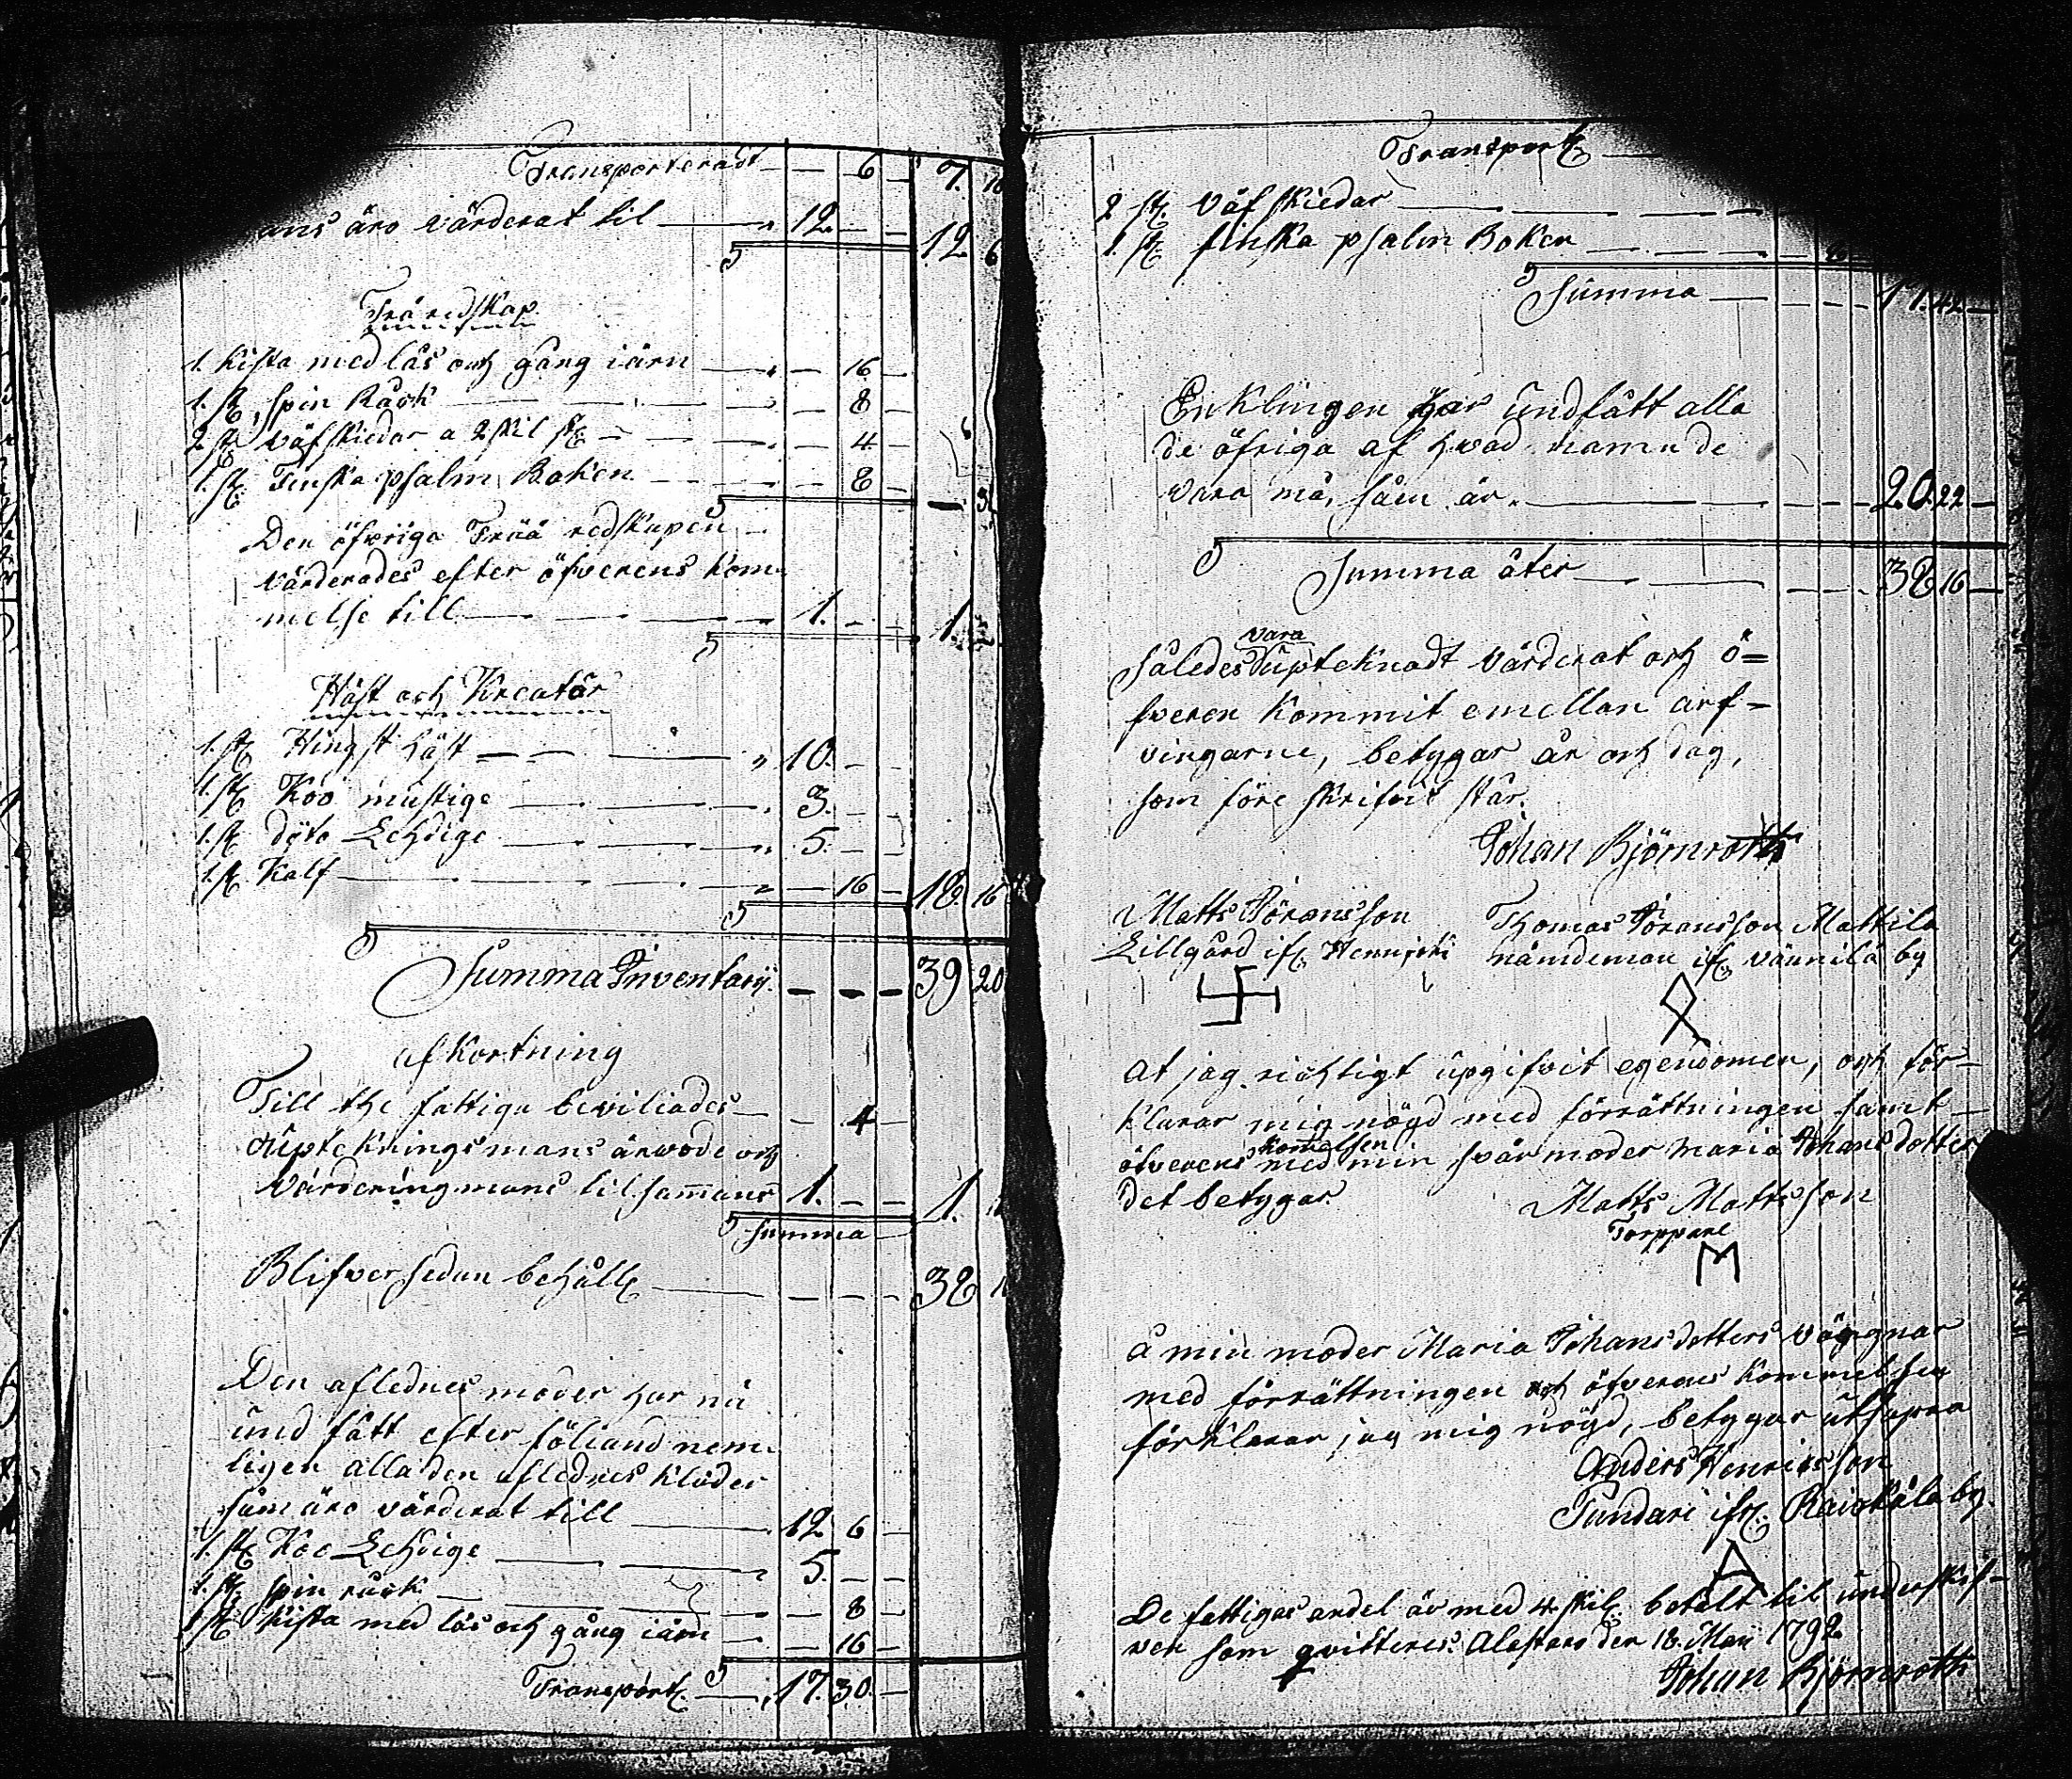 Transporteradt — 6 — 7. 16
ans äro värderat til — 12 — — 12 6
Träredskap.
1. Kista med lås och gång iärn — 16 —
1. st. spin Råck — 8 —
2. st. väfskiedar a 2 skil st. — 4 —
1. st. Finska psalm Boken — 8 —
Den öfwriga Trää redskapen
värderades efter öfverens kom-
melse till — 1. — — 1.
Häst och Kreatur
1. st. Hingst häst — 10. —
1. st. Koo mustige — 3. — —
1. st. dito Lehoige — 5. — —
1. st. Kalf — 16 — 18. 16
Summa Inventarij — — — 39 20
afkortning
Till the fattiga beviliades — 4 —
Uptekningsmans arwode och
Värderingmans til sammans 1. — — 1.
Summa
Blifver sedan behåll — 38
Den aflednes moder har nu
und fått efter föliand nem-
ligen alla den aflednes kläder
såm äro värderat till — 12 6 —
1. st. Koo Lehoige — 5. — —
1. st. spin råck — 8 —
1. st. Kista med lås och gång iärn — 16 —
Transport. — 17. 30. —
Transport —
2 st. Väfskiedar —
1. st. finska psalm Boken —
Summa — 17. 42 —
Enklingen har undfått alla
de öfriga af hvad namn de
vara må, såm är — 20. 22 —
Summa åter — 38 16 —
vara
således Uptecknadt värderat och ö=
fveren kommit emellan arf=
vingarne, betygar år och dag,
som före skrifvit står.
Johan Björnroth
Matts Jöransson Thomas Jöransson Mattila
Lillgård ifr. Hennijoki nämdeman ifr. vännilä by
At jag richtigt upgifvit egendomen, och för-
klarar mig nögd med förrättningen samt
kommelsen
öfverens med min svärmoder Maria Johansdotter
det betygar. Matts Mattsson
Torppare
M
å min moder Maria Johansdotters vägnar
med förrättningen och öfverens kommelsen
förklarar jag mig nögd, betygar
Anders Henricsson
Tundari ifr. Raiskåla by.
A
De fattigas andel är med 4 skil. betalt til underskrif-
ven som qvitteres. Alastaro den 18. Maii 1792
Johan Björnroth